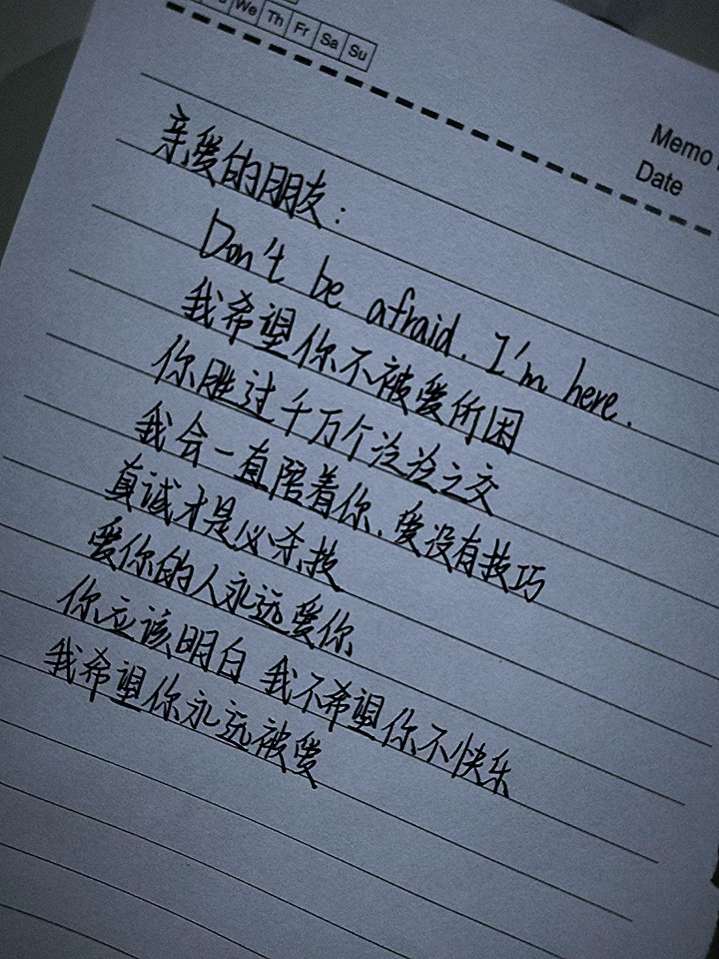 We Th Fr Sa Su
Memo
Date
亲爱的朋友:
Don't be afraid. I'm here.
我希望你不被爱所困
你胜过千万个泛泛之交
我会一直陪着你、爱没有技巧
真诚才是必杀技
爱你的人永远爱你
你应该明白 我不希望你不快乐
我希望你永远被爱